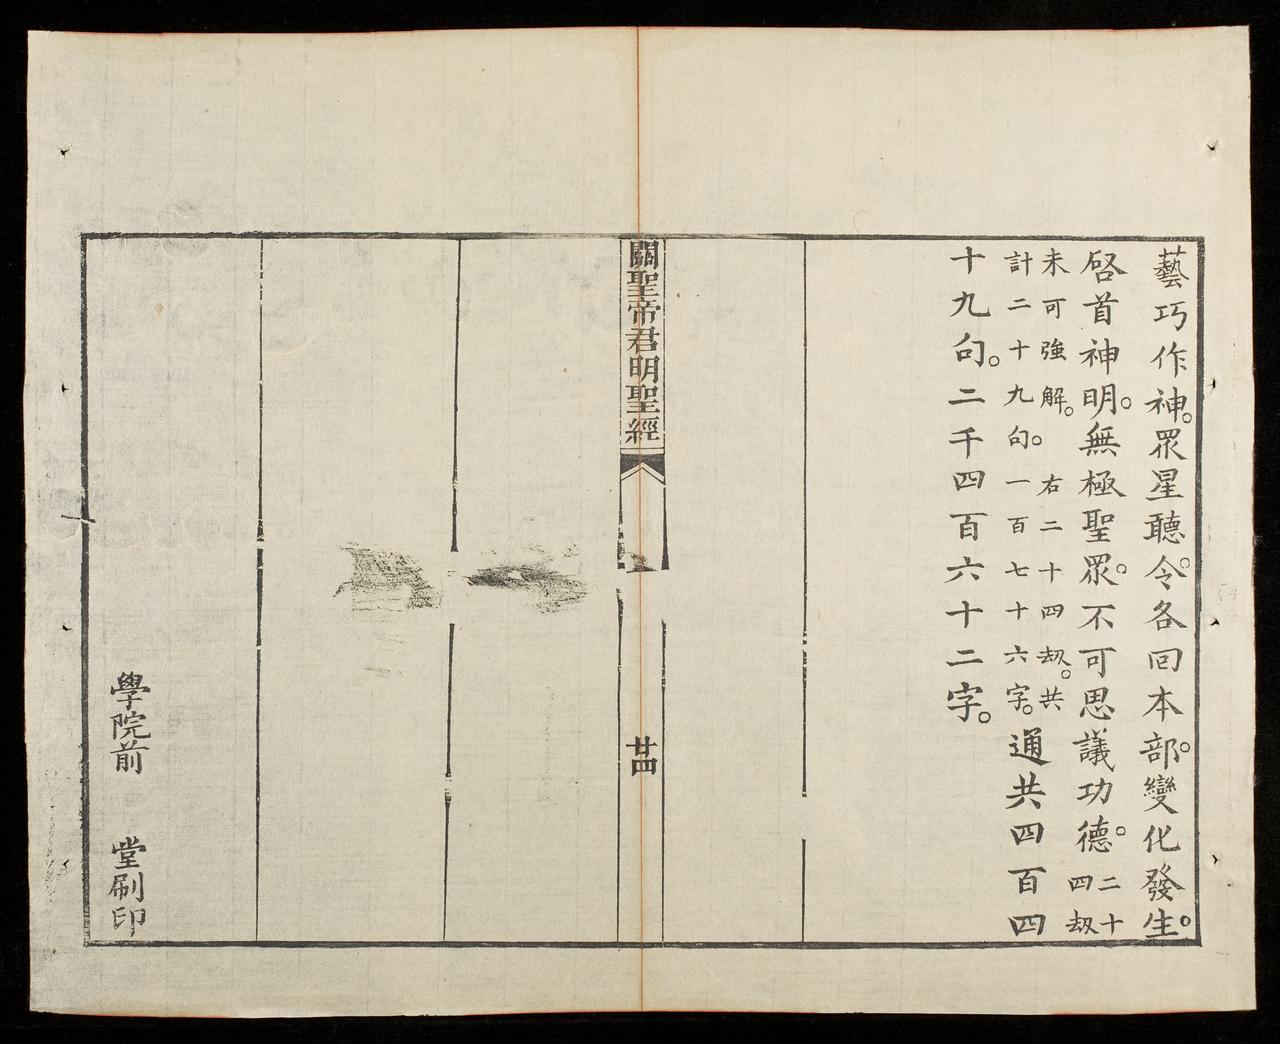 藝巧作神。眾星聽令。各回本部。變化發生。
啓首神明。無極聖眾。不可思議功德。二十
四刼
未可強解。右二十四刼。共
計二十九句。一百七十六字。通共四百四
十九句。二千四百六十二字。
關聖帝君明聖經
廿四
學院前 堂刷印